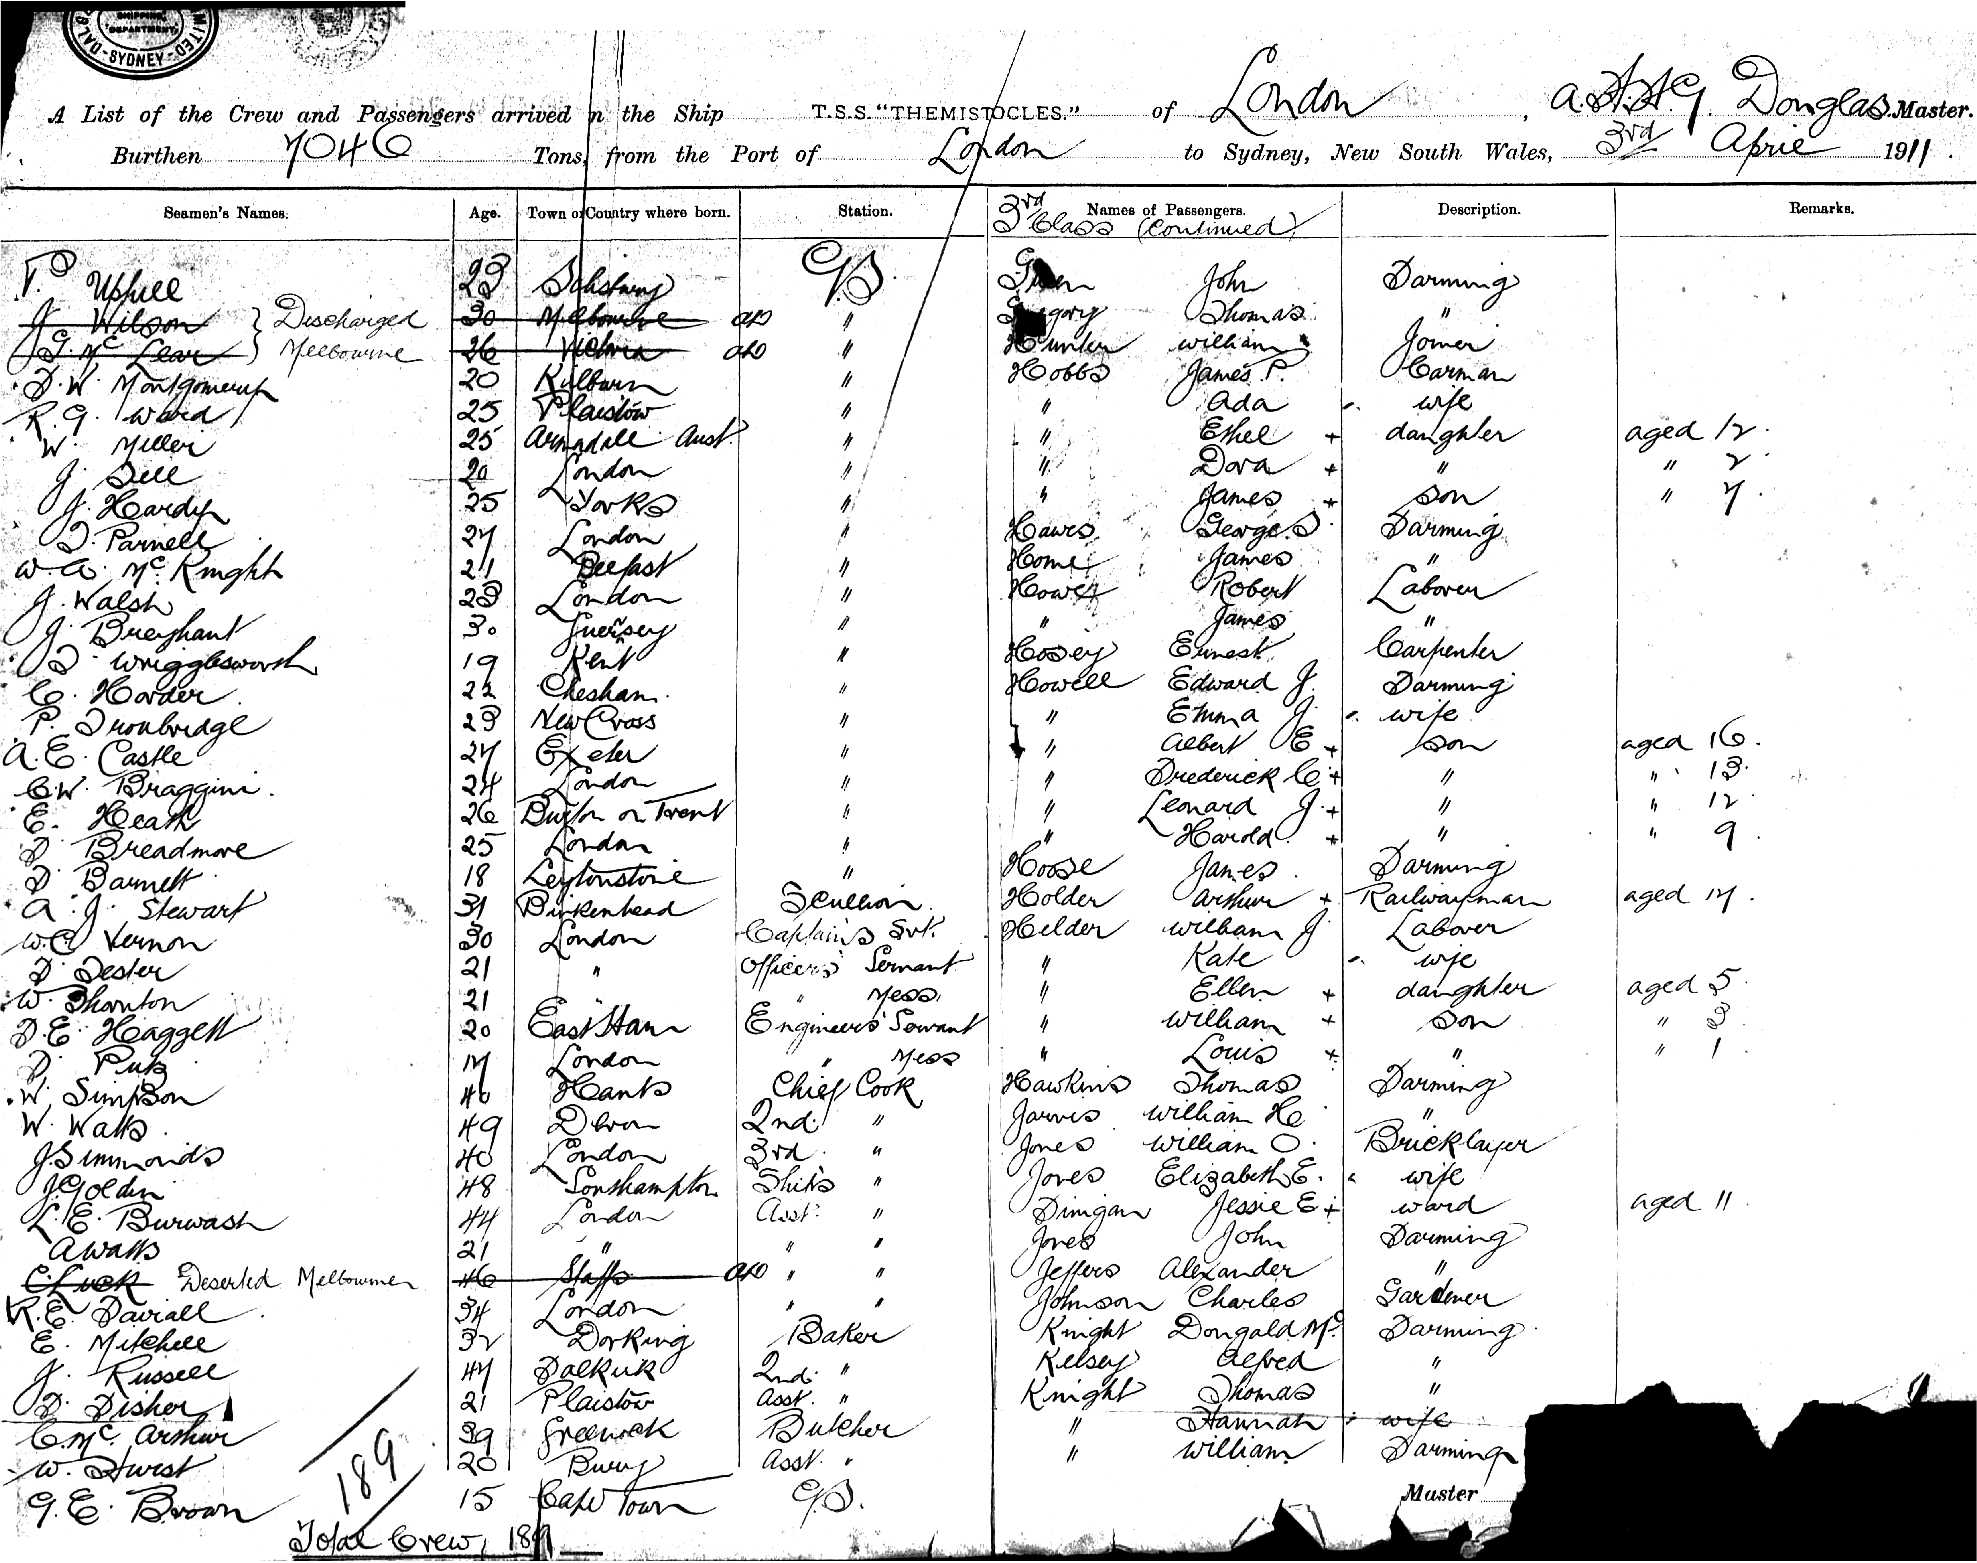 LIMITED
SHIPPING
DEPARTMENT
SYDNEY
A List of the Crew and Passengers arrived in the Ship T.S.S. "THEMISTOCLES." of London, Douglas Master.
Burthen 7046 Tons, from the Port of London to Sydney, New South Wales, 3rd April 1911.
Seamen's Names. Age. Town or Country where born. Station. Names of Passengers. Description. Remarks.
3rd Class (Continued)
Upfill 23 Salisbury G.S. Green John Farming
J. Wilson } Discharged 30 Melbourne " Gregory Thomas "
Mc Lear } Melbourne 26 Victoria " Hunter William Joiner
D. W. Montgomery 20 Kilburn " Hobbs James P. Carman
R. G. Ward 25 Plaistow " " Ada wife
W. Miller 25 Armadale Aust. " " Ethel + daughter aged 12.
J. Sell 20 London " " Dora + " " 2.
J. Hardy 25 Yorks " " James + son " 7.
Parnell 27 London " Hawes George S. Farming
W. A. Mc Knight 21 Belfast " Home James "
J. Walsh 23 London " Howes Robert Labourer
J. Breyhant 30 Guernsey " " James "
Wrigglesworth 19 Kent " Hosey Ernest Carpenter
C. Horder 22 Chesham " Howell Edward J. Farming
P. Ironbridge 23 New Cross " " Emma J. wife
A. E. Castle 27 Exeter " " Albert E + son aged 16.
C. W. Braggini. 24 London " " Frederick C. + " " 13.
E. Heath 26 Burton on Trent " " Leonard J. + " " 12
Breadmore 25 London " " Harold + " " 9.
Barnett 18 Leytonstone " Hoose James Farming
A. J. Stewart 31 Birkenhead Scullion. Holder Arthur + Railwayman aged 17.
W. C. Vernon 30 London Captain's Svt. Helder William J Labourer
21 " Officers' Servant " Kate wife
W. Thornton 21 " Mess. " Ellen + daughter aged 5.
F. E. Haggett 20 East Ham Engineers' Servant " William + son " 3.
17 London " Mess " Louis + " " 1.
W. Simpson 46 Hants Chief Cook Hawkins Thomas Farming
W. Watts. 49 Devon 2nd. " Jarvis William H. "
J. Simmonds 40 London 3rd. " Jones William O. Bricklayer
J. Golden 48 Southampton Ship's " Jones Elizabeth E. wife
L. E. Burwash 44 London Asst. " Dinigan Jessie E + ward aged 11.
A Watts 21 " " " Jones John Farming
C. Luck Deserted Melbourne 46 Staffs " " Jeffers Alexander "
R. E. Dariall 34 London " " Johnson Charles Gardener
E. Mitchell 32 Dorking Baker Knight Dongald Mc. Farming.
J. Russell 47 Falkirk 2nd. " Kelsey Alfred "
Fisher 21 Plaistow Asst. " Knight Thomas "
C. Mc. Arthur 39 Greenock Butcher " Hannah wife
W. Hurst 20 Bury Asst. " " William Farming
G. E. Brown 15 Cape Town G.S. Master
189
Total Crew, 189